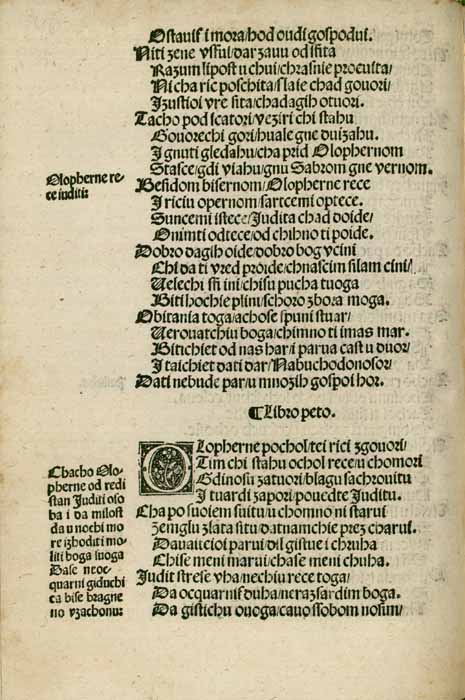 Ostauif i mora/hod oudi gospodui.
Niti zene vsfui/dar zauu od isita
Razum lipost u chui/chrasnie procuita/
Ni cha ric poschita/slaie chad gouori/
Izustioi vre sita/chadagih otuori.
Tacho pod scatori/veziri chi stahu
Gouorechi gori/huale gne duizahu.
I gnuti gledahu/cha prid Olophernom
Stasce/gdi viahu/gnu Sabrom gne vernom.
Besidom bisernom/Olopherne rece
I riciu opernom/sartcemi optece.
Suncemi istece/Judita chad doide/
Onimti odtece/od chihno ti poide.
Dobro dagih oide/dobro bog vcini
Chi da ti vred proide/chnascim silam cini/
Uelechi sti ini/chisu pucha tuoga
Biti hochie plini/schoro zbora moga.
Obitania toga/achose spuni stuar/
Uerouatchiu boga/chimno ti imas mar.
Bitichiet od nas har/i parua cast u duor/
I taichiet dati dar/Nabuchodonosor/
Dati nebude par/u mnozih gospoi hor.
Olopherne re-
ce iuditi:
¶Libro peto.
Olopherne pochol/tei rici zgouori/
Tim chi stahu ochol rece/u chomori
Gdinosu zatuori/blagu sachrouitu
I tuardi zapori/pouedte Juditu.
Cha po suoiem suitu/u chomno ni starui
Zemglu zlata situ/datnamchie prez charui.
Dauaiicioi parui/dil gistue i chruha
Chise meni marui/chase meni chuha.
Judit strese vha/nechiu rece toga/
Da ocquarnis duha/neraz sardim boga.
Da gistichu ouoga/cauo ssobom nosim/
Chacho Olo-
pherne od redi
stan Juditi oso
ba i da milost
da u nochi mo
re izhoditi mo-
liti boga suoga
Dase neoc-
quarni giduchi
ca bise bragne
no vzachonu: